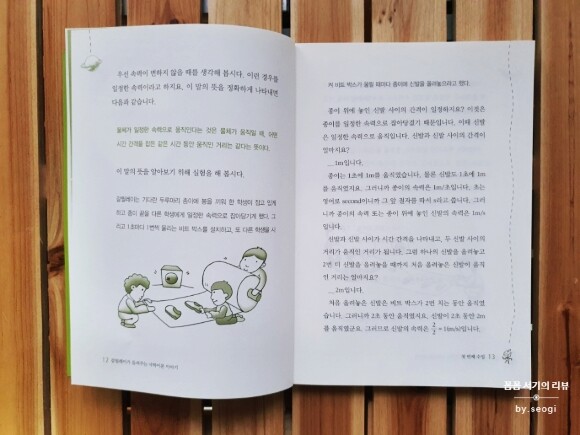 우선 속력이 변하지 않을 때를 생각해 봅시다. 이런 경우를
일정한 속력이라고 하지요. 이 말의 뜻을 정확하게 나타내면
다음과 같습니다.
물체가 일정한 속력으로 움직인다는 것은 물체가 움직일 때, 어떤
시간 간격을 잡든 같은 시간 동안 움직인 거리는 같다는 뜻이다.
이 말의 뜻을 알아보기 위해 실험을 해 봅시다.
갈릴레이는 기다란 두루마리 종이에 봉을 끼워 한 학생이 잡고 있게
하고 종이 끝을 다른 학생에게 일정한 속력으로 잡아당기게 했다. 그
리고 1초마다 1번씩 울리는 비트 박스를 설치하고, 또 다른 학생을 시
12 갈릴레이가 들려주는 낙하이론 이야기
켜 비트 박스가 울릴 때마다 종이에 신발을 올려놓으라고 했다.
종이 위에 놓인 신발 사이의 간격이 일정하지요? 이것은
종이를 일정한 속력으로 잡아당겼기 때문입니다. 이때 신발
은 일정한 속력으로 움직입니다. 신발과 신발 사이의 간격이
얼마지요?
__1m입니다.
종이는 1초에 1m를 움직였습니다. 물론 신발도 1초에 1m
를 움직였지요. 그러니까 종이의 속력은 1m/초입니다. 초는
영어로 second이니까 그 앞 글자를 써서 s라고 씁니다. 그러
니까 종이의 속력 또는 종이 위에 놓인 신발의 속력은 1m/s
입니다.
신발과 신발 사이가 시간 간격을 나타내고, 두 신발 사이의
거리가 움직인 거리가 됩니다. 그럼 하나의 신발을 올려놓고
2번 더 신발을 올려놓을 때까지 처음 올려놓은 신발이 움직
인 거리는 얼마이지요?
__2m입니다.
처음 올려놓은 신발은 비트 박스가 2번 치는 동안 움직였
습니다. 그러니까 2초 동안 움직였지요. 신발이 2초 동안 2m
를 움직였군요. 그러므로 신발의 속력은 2/2=1(m/s)입니다.
첫 번째 수업 13
폼폼 서기의 리뷰
by.seogi